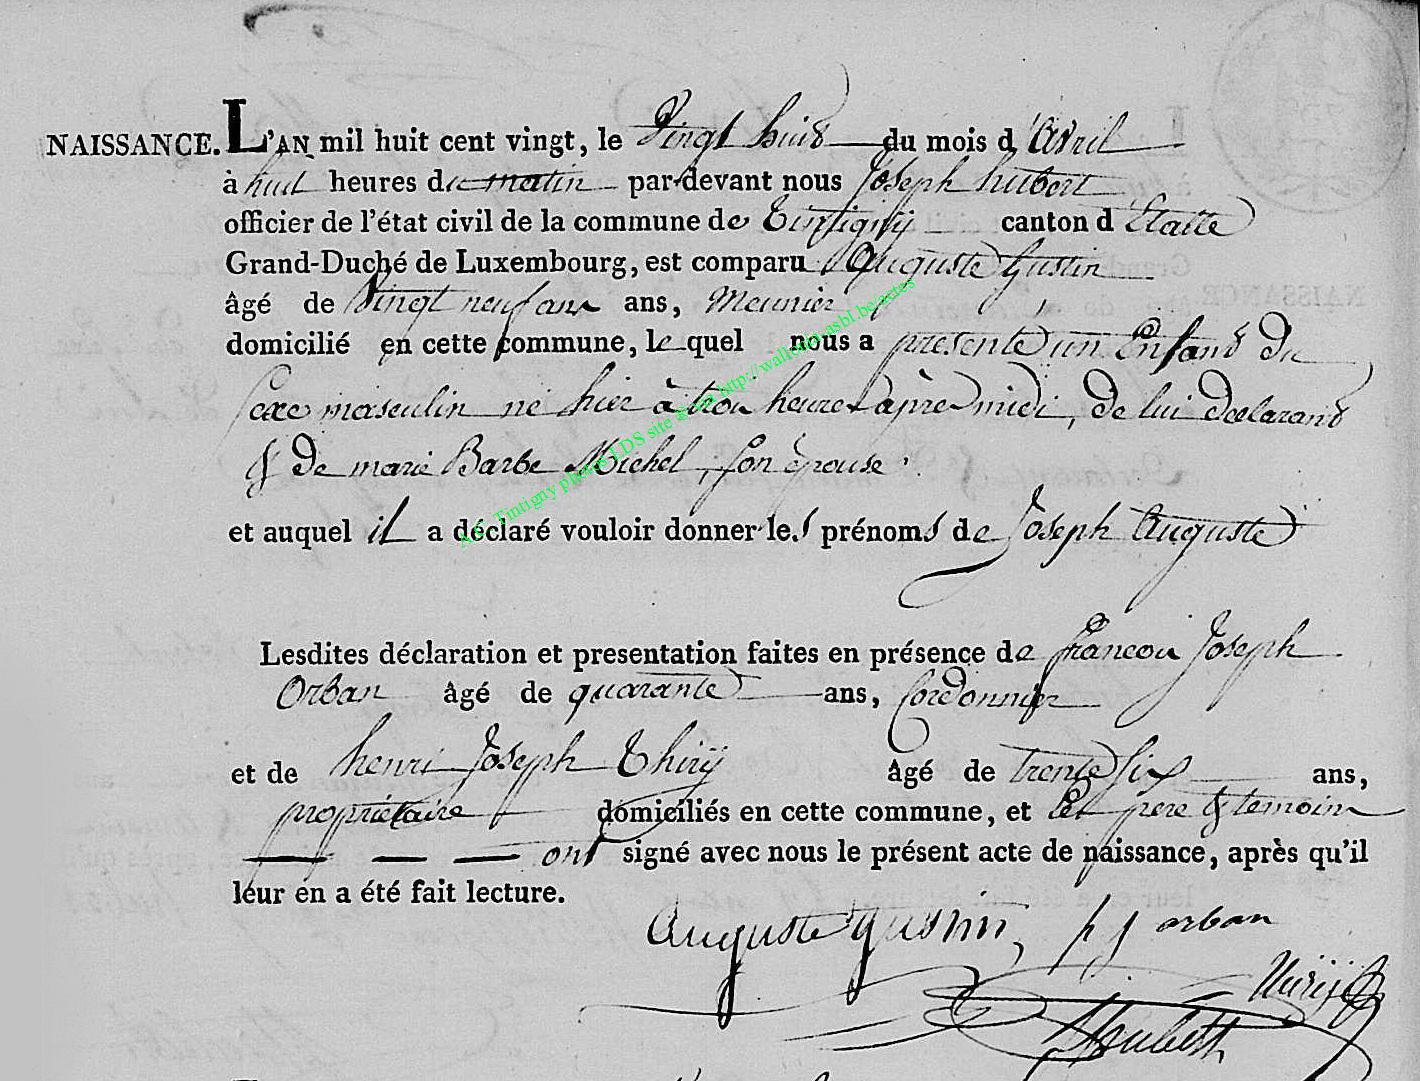 NAISSANCE. L'AN mil huit cent vingt, le Vingt huit du mois d'avril
à huit heures du matin par-devant nous Joseph hubert
officier de l'état civil de la commune de Tintigny canton d'Etalle
Grand-Duché de Luxembourg, est comparu Auguste Gustin
âgé de Vingt neuf ans ans, meunier
domicilié en cette commune, lequel nous a presenté un Enfant du
sexe masculin né hier à trois heures après midi, de lui declarant
& de marie Barbe Michel, son épouse.
et auquel il a déclaré vouloir donner les prénoms de Joseph Auguste
Lesdites déclaration et presentation faites en présence de francois Joseph
Orban âgé de quarante ans, Cordonnier
et de henri Joseph Thirÿ âgé de trente six ans,
propriétaire domiciliés en cette commune, et les pere & temoins
ont signé avec nous le présent acte de naissance, après qu'il
leur en a été fait lecture.
Auguste gustin, f j orban
thirÿ
JHubert
A.C. Tintigny photos LDS site @ via http://wallonia-asbl.be/actes